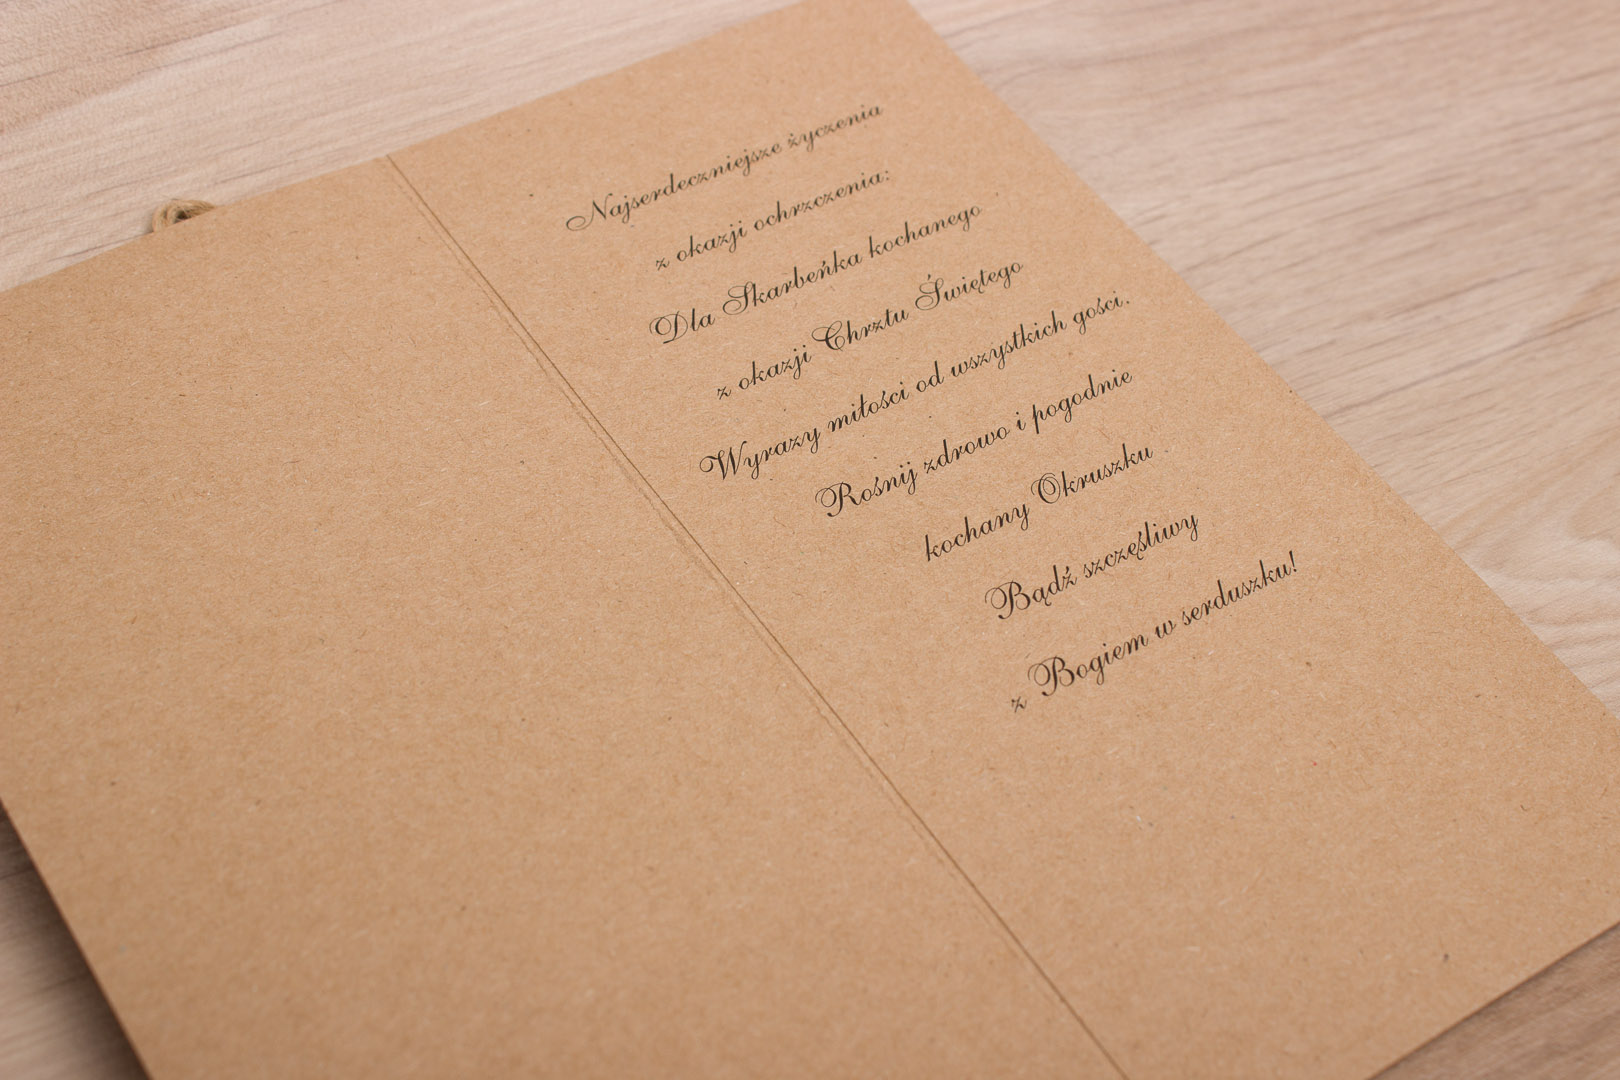 Najserdeczniejsze życzenia
z okazji ochrzczenia:
Dla Skarbeńka kochanego
z okazji Chrztu Świętego
Wyrazy miłości od wszystkich gości.
Rośnij zdrowo i pogodnie
kochany Okruszku
Bądź szczęśliwy
z Bogiem w serduszku!